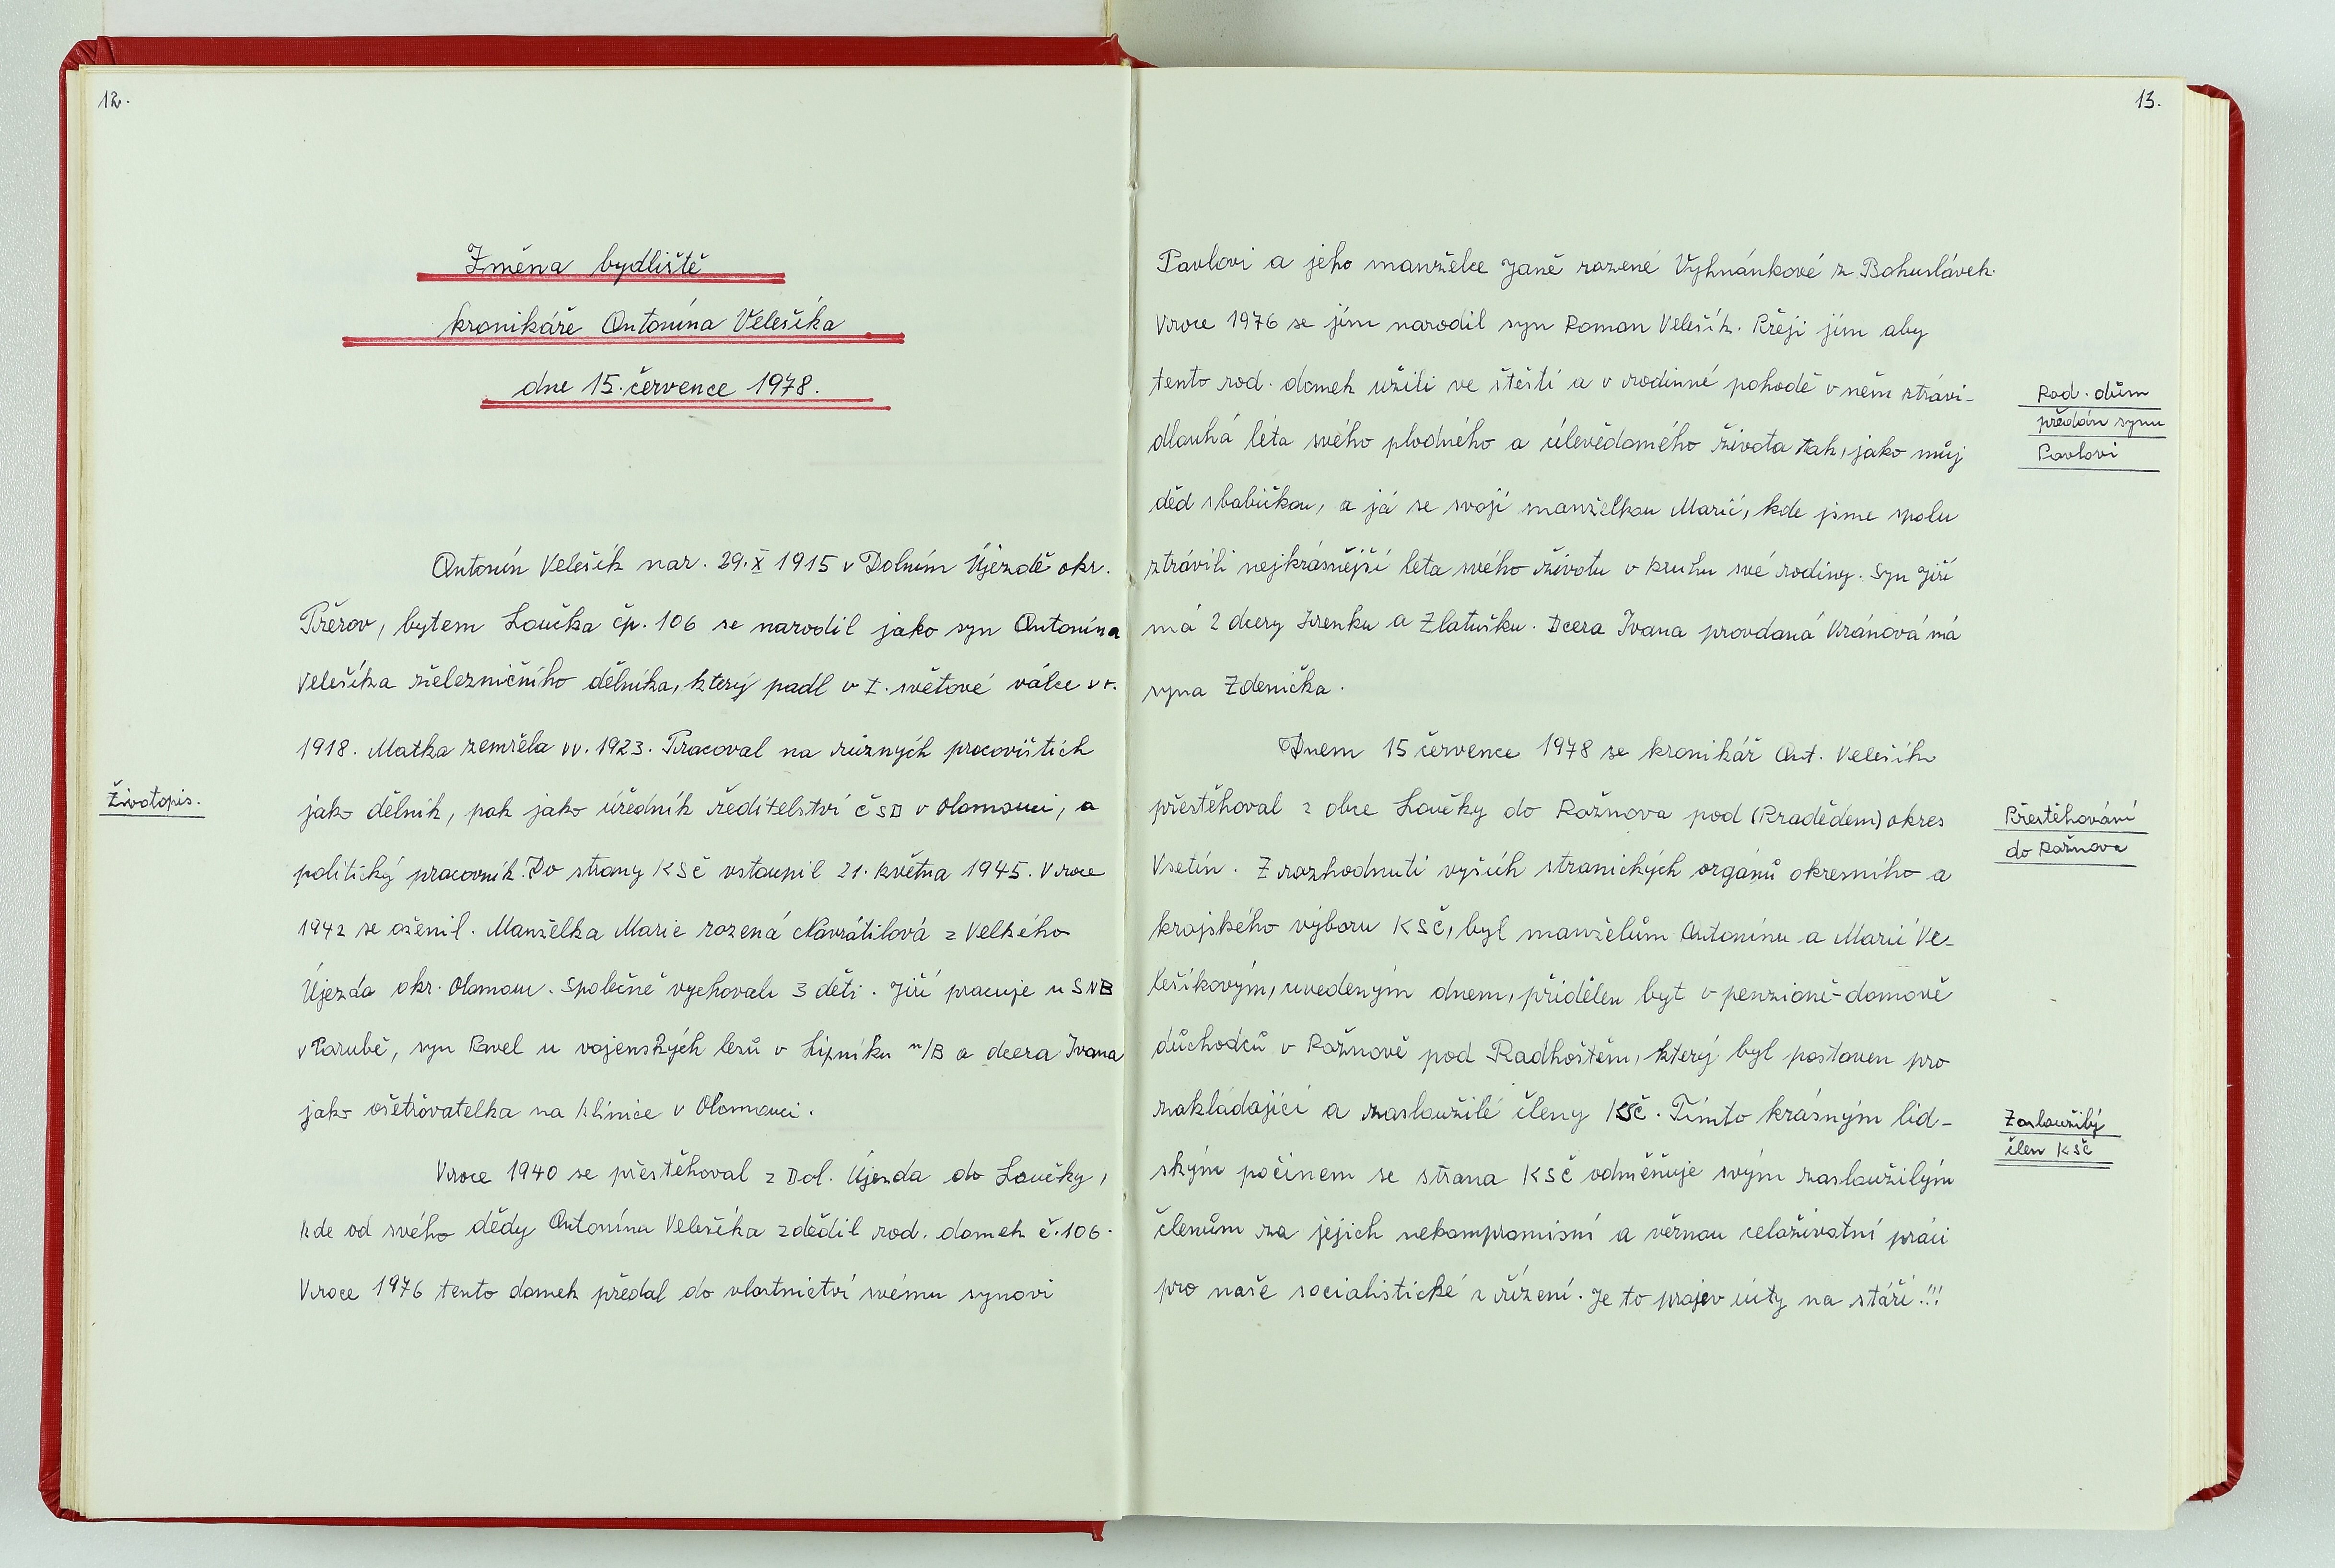 12.
Změna bydliště
kronikáře Antonína Velešíka
dne 15. července 1978.
Antonín Velešík nar. 29. X 1915 v Dolním Újezdě okr.
Přerov, bytem Loučka čp. 106 se narodil jako syn Antonína
Velešíka železničního dělníka, který padl v I. světové válce v r.
1918. Matka zemřela v r. 1923. Pracoval na různých pracovištích
Životopis.
jako dělník, pak jako úředník ředitelství ČSD v Olomouci, a
politický pracovník. Do strany KSČ vstoupil 21. května 1945. V roce
1942 se oženil. Manželka Marie rozená Navrátilová z Velkého
Újezda okr. Olomouc. Společně vychovali 3 děti. Jiří pracuje u SNB
v Porubě, syn Pavel u vojenských lesů v Lipníku n/B a dcera Ivana
jako ošetřovatelka na klinice v Olomouci.
V roce 1940 se přestěhoval z Dol. Újezda do Loučky,
kde od svého dědy Antonína Velešíka zdědil rod. domek č. 106.
V roce 1976 tento domek předal do vlastnictví svému synovi
13.
Pavlovi a jeho manželce Janě rozené Vyhnánkové z Bohuslávek.
V roce 1976 se jím narodil syn Roman Velešík. Přeji jím aby
tento rod. domek užili ve štěstí a v rodinné pohodě v něm strávi-
Rod. dům
předán synu
Pavlovi
dlouhá léta svého plodného a úlevědomého života tak, jako můj
děd s babičkou, a já se svojí manželkou Marií, kde jsme spolu
ztrávili nejkrásnější léta svého života v kruhu své rodiny. Syn Jiří
má 2 dcery Irenku a Zlatušku. Dcera Ivana provdaná Vránová má
syna Zdenička.
Dnem 15 července 1978 se kronikář Ant. Velešík
přestěhoval z obce Loučky do Rožnova pod (Pradědem) okres
Přestěhování
do Rožnova
Vsetín. Z rozhodnutí vyších stranických orgánů okresního a
krajského výboru KSČ, byl manželům Antonínu a Marii Ve-
lešíkovým, uvedeným dnem, přidělen byt v penzioně-domově
důchodců v Rožnově pod Radhoštěm, který byl postaven pro
zakládající a zasloužilé členy KSČ. Tímto krásným lid-
Zasloužilý
člen KSČ
ským počinem se strana KSČ odměňuje svým zasloužilým
členům za jejich nekompromisní a věrnou celoživotní práci
pro naše socialistické zřízení. Je to projev úcty na stáří!!!